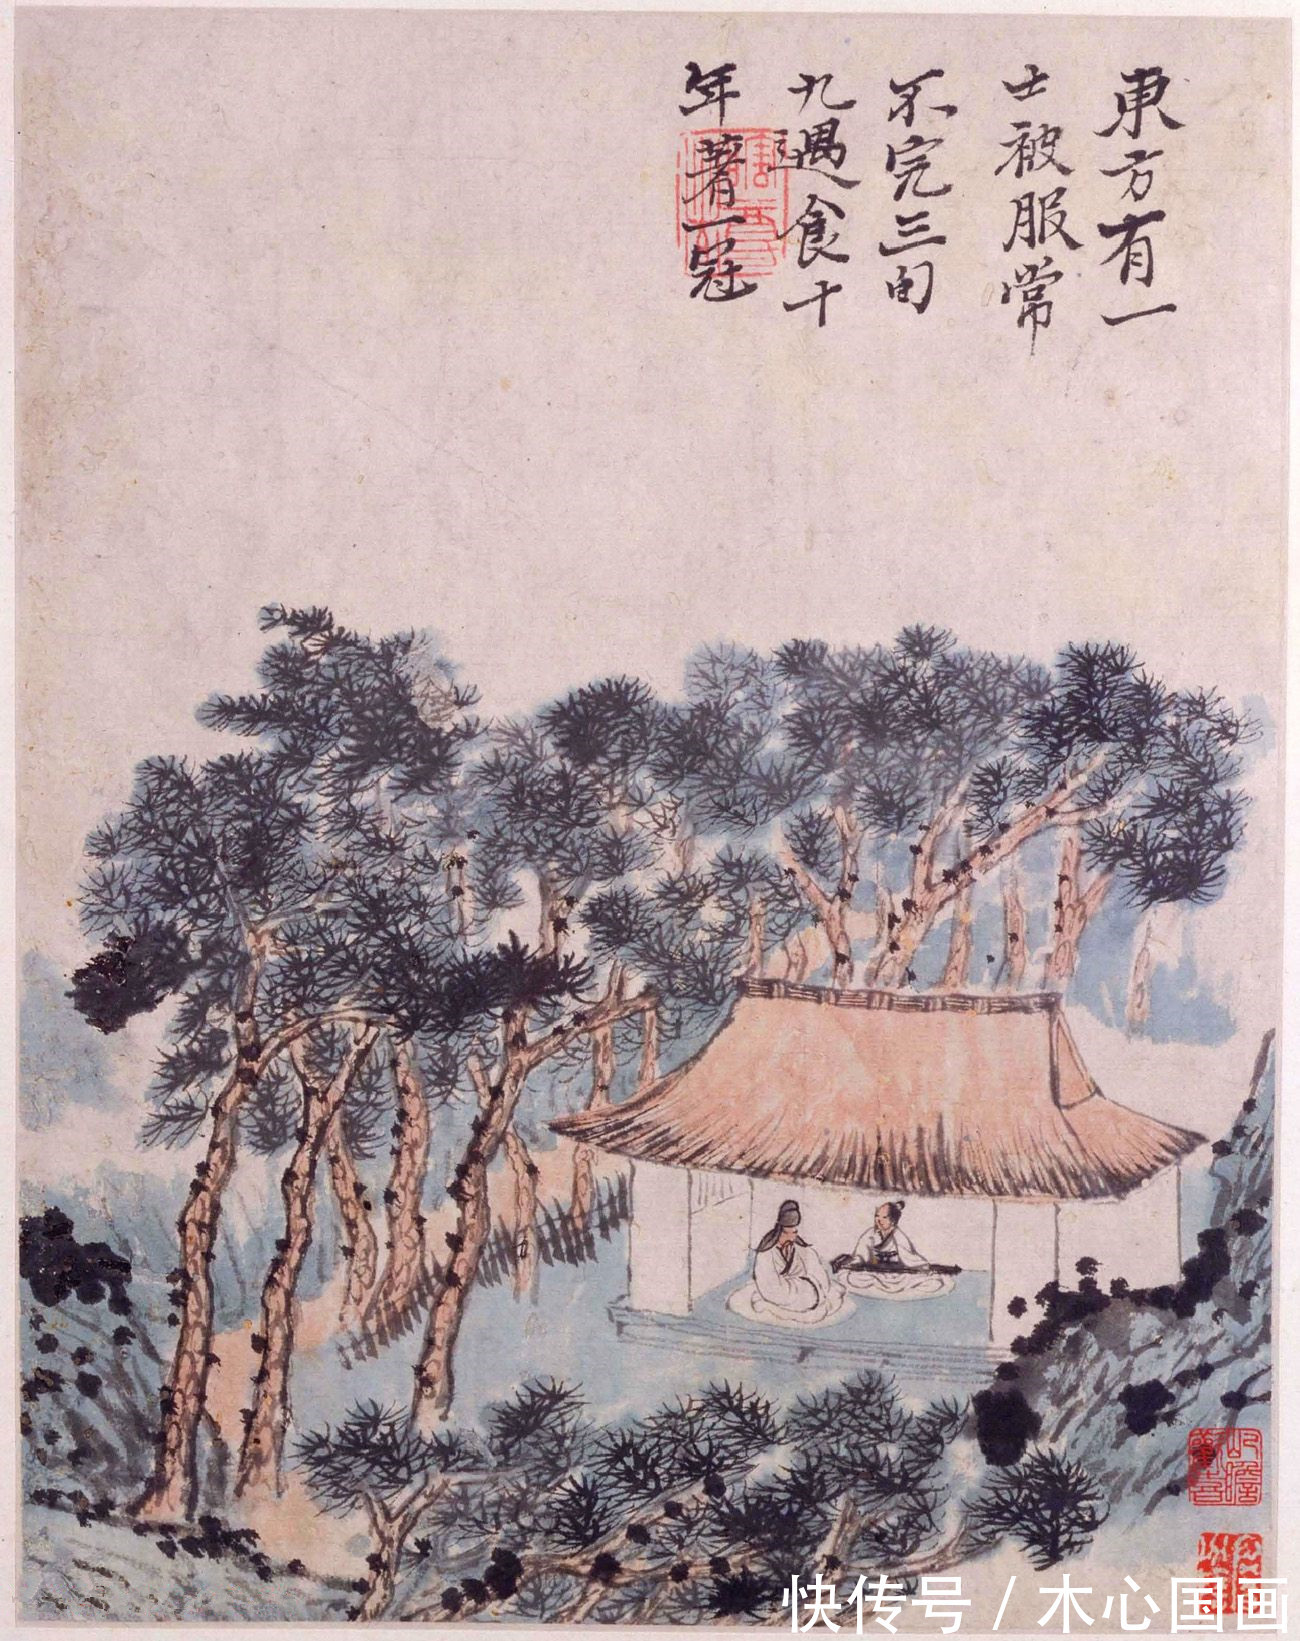 東方有一
士被服常
不完三旬
九遇食十
年著一冠
快传号/木心国画